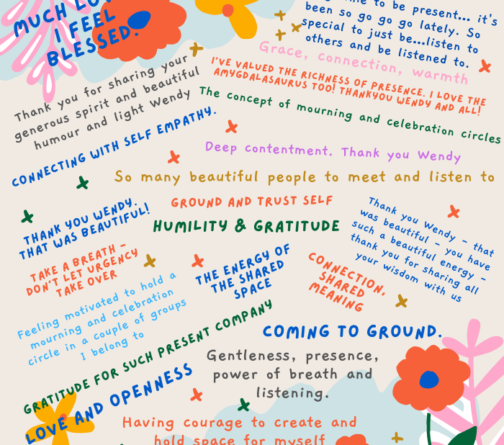 MUCH LO
I FEEL
BLESSED.
to be present... it's
been so go go go lately. So
special to just be...listen to
others and be listened to.
Grace, connection, warmth
Thank you for sharing your
generous spirit and beautiful
humour and light Wendy
I'VE VALUED THE RICHNESS OF PRESENCE. I LOVE THE
AMYGDALASAURUS TOO! THANKYOU WENDY AND ALL!
The concept of mourning and celebration circles
CONNECTING WITH SELF EMPATHY.
Deep contentment. Thank you Wendy
So many beautiful people to meet and listen to
GROUND AND TRUST SELF
THANK YOU WENDY.
THAT WAS BEAUTIFUL!
HUMILITY & GRATITUDE
Thank you Wendy - that
was beautiful - you have
such a beautiful energy -
thank you for sharing all
your wisdom with us
TAKE A BREATH -
DON'T LET URGENCY
TAKE OVER
THE ENERGY OF
THE SHARED
SPACE
CONNECTION,
SHARED
MEANING
Feeling motivated to hold a
mourning and celebration
circle in a couple of groups
I belong to
GRATITUDE FOR SUCH PRESENT COMPANY
COMING TO GROUND.
Gentleness, presence,
power of breath and
listening.
LOVE AND OPENNESS
Having courage to create and
hold space for myself